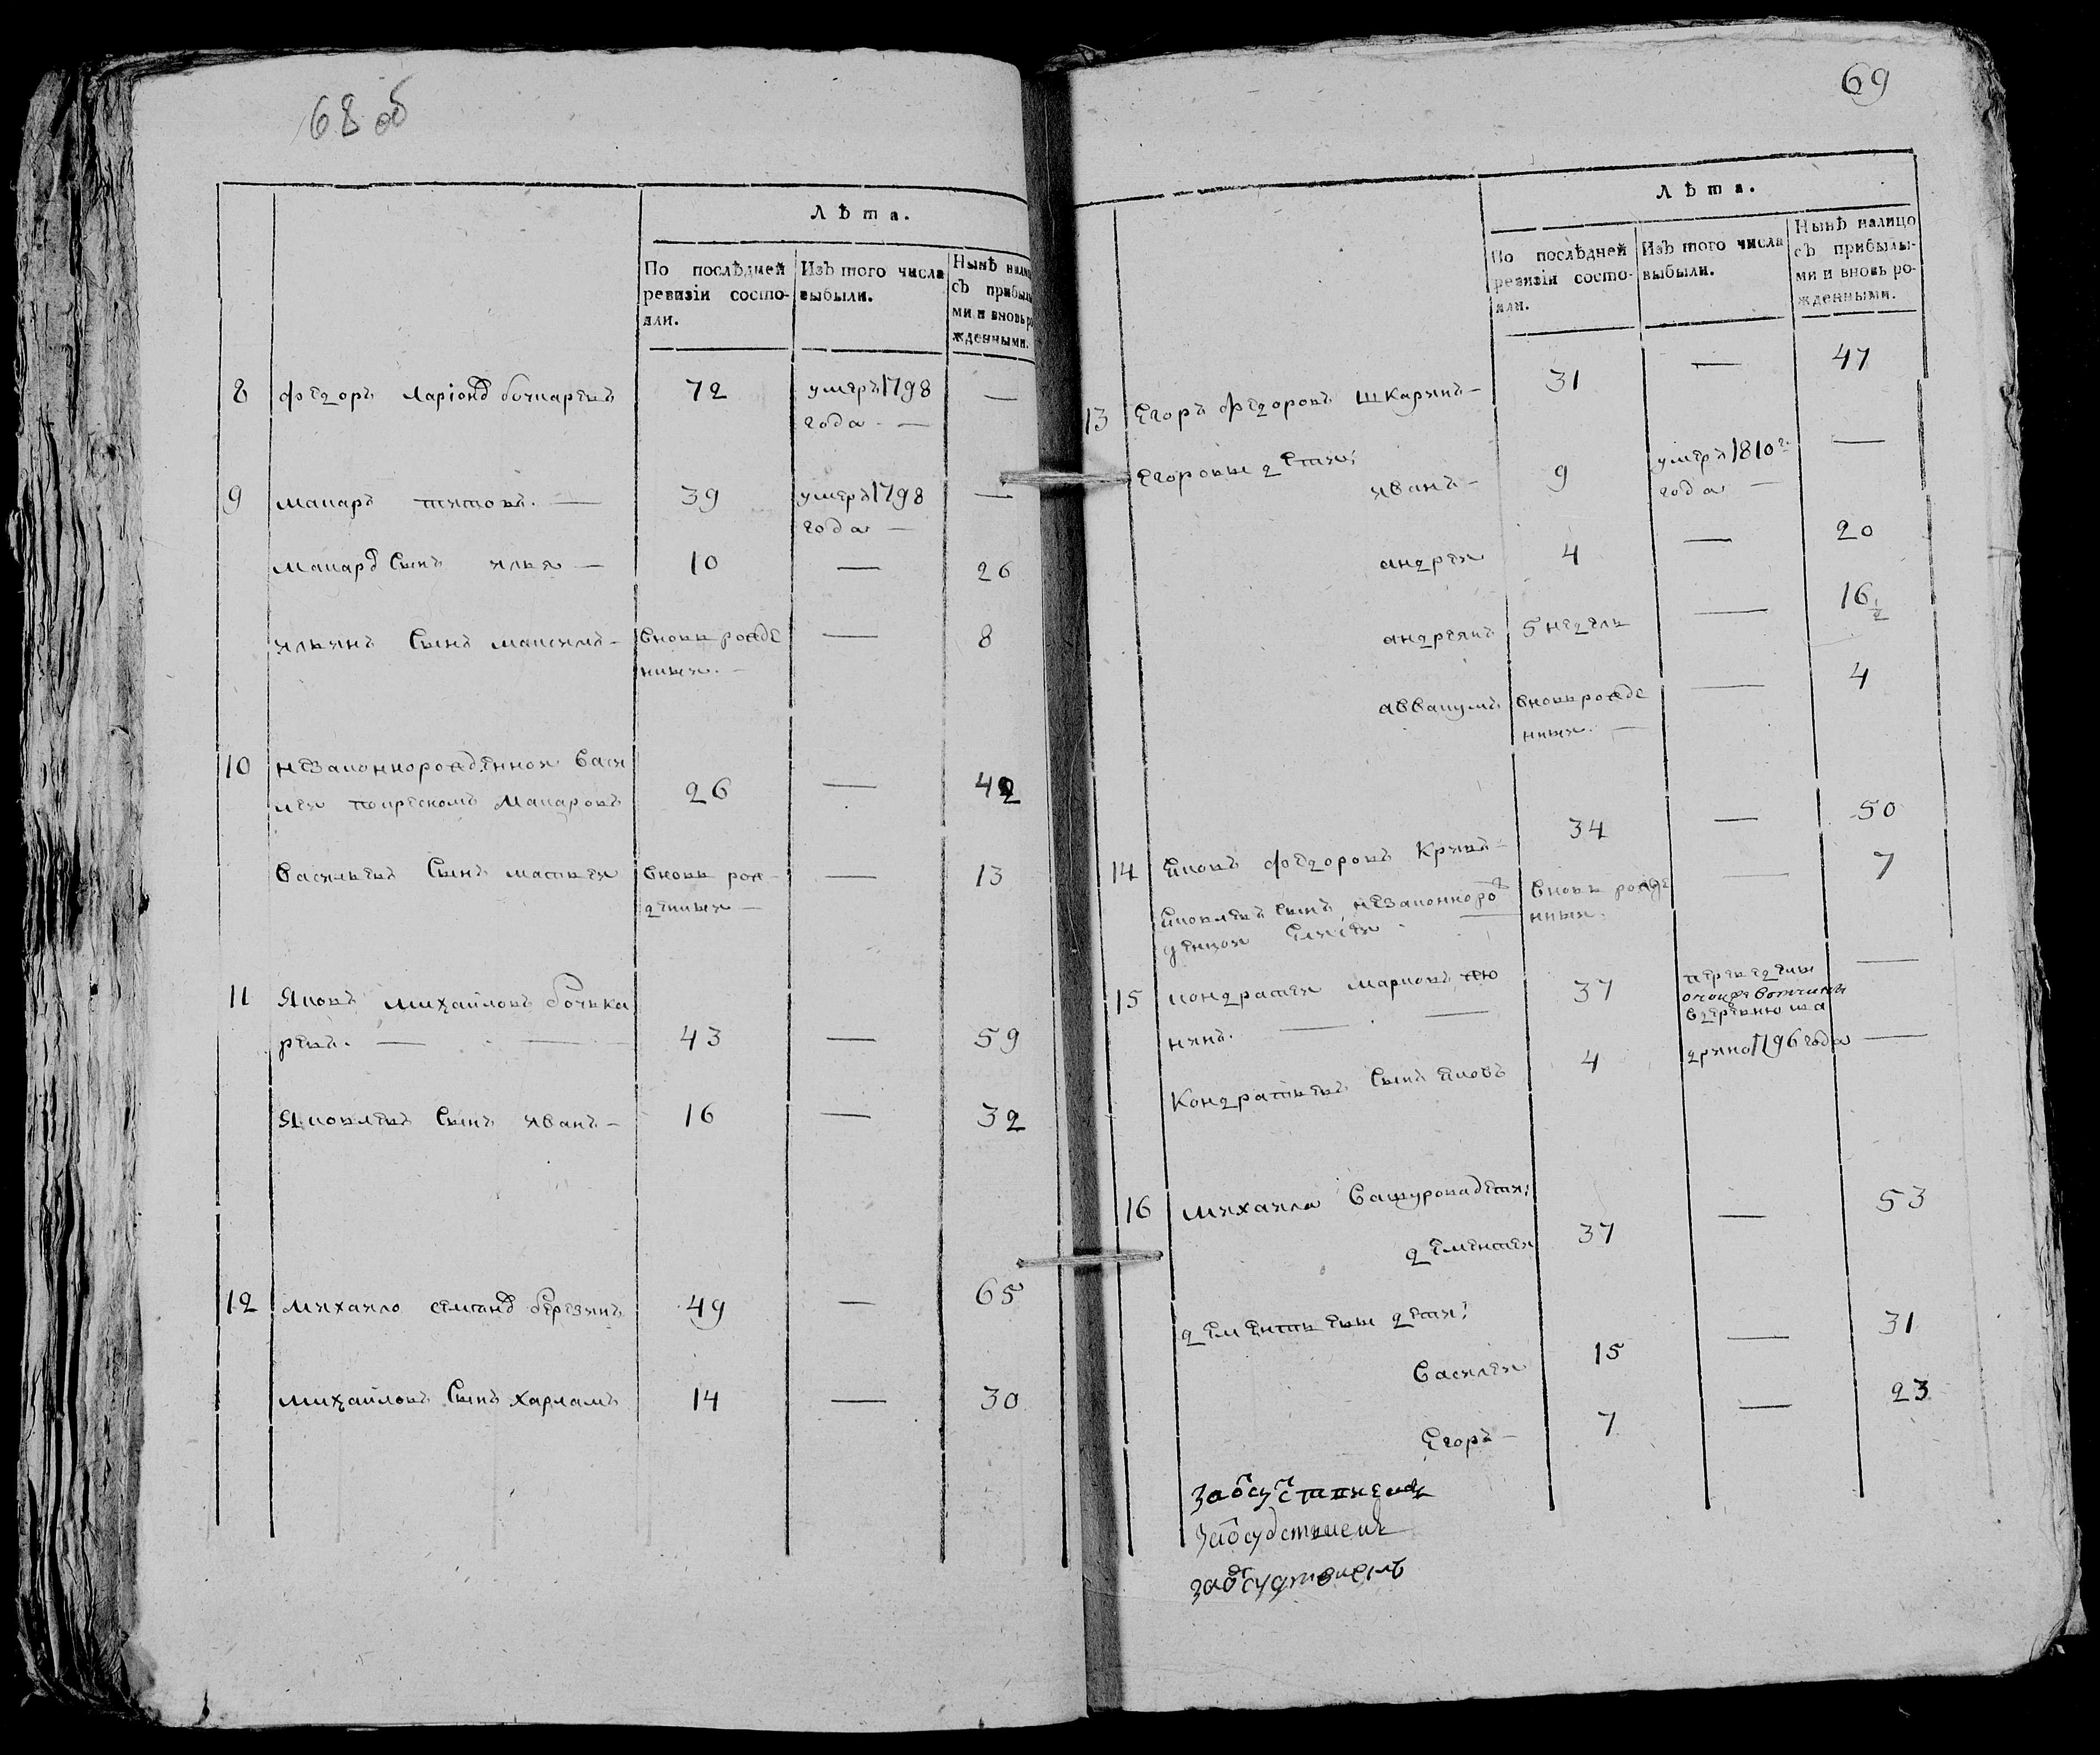 68 об
Лѣта.
По послѣдней ревизіи состо-
яли.
Изъ того числа
выбыли.
Нынѣ нали
съ прибылы
ми и вновь ро
жденными.
8 Федоръ Ларіоновъ бочкаревъ 72 умеръ 1798 —
года —
9 Макаръ титовъ. — 39 умеръ 1798 —
года —
Макаровъ Сынъ илья — 10 — 26
ильинъ Сынъ максимъ — вновь рожде — 8
нный. —
10 незаконнорожденной Васи
лей покрестномъ Макаровъ 26 — 42
Васильевъ Сынъ матвей вновь рож — 13
денный —
11 Яковъ михайловъ бочька
ревъ. — 43 — 59
Яковлевъ Сынъ иванъ — 16 — 32
12 михайло семеновъ березинъ 49 — 65
михайловъ Сынъ харламъ 14 — 30
69
Лѣта.
По послѣдней
ревизіи состо-
яли.
Изъ того числа
выбыли.
Нынѣ налицо
съ прибылы-
ми и вновь ро-
жденными.
13 Егоръ федоровъ шкаринъ — 31 — 47
Егоровы дети;
иванъ — 9 умеръ 1810 г. —
года —
андрей 4 — 20
андреянъ 5 недели — 16 1/2
аввакумъ вновь рожде — 4
нный. —
14 Яковъ федоровъ Кривъ — 34 — 50
Яковлевъ Сынъ незаконноро вновь рожде — 7
денной Елисей — нный.
15 кондратей марковъ тю 37 переведены —
нинъ. — вотчины
вдеревню ша
Кондратьевъ Сынъ Яковъ 4 дрино 1796 года —
16 михайла Сашурова дети;
дементей 37 — 53
дементьевы дети;
Василей 15 — 31
Егоръ — 7 — 23